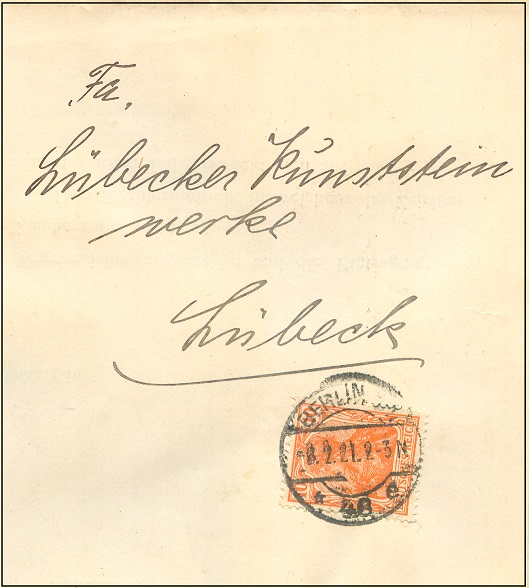 Fa.
Lübecker Kunststein
werke
Lübeck
BERLIN
-8.2.21.2-3N
* 48 e